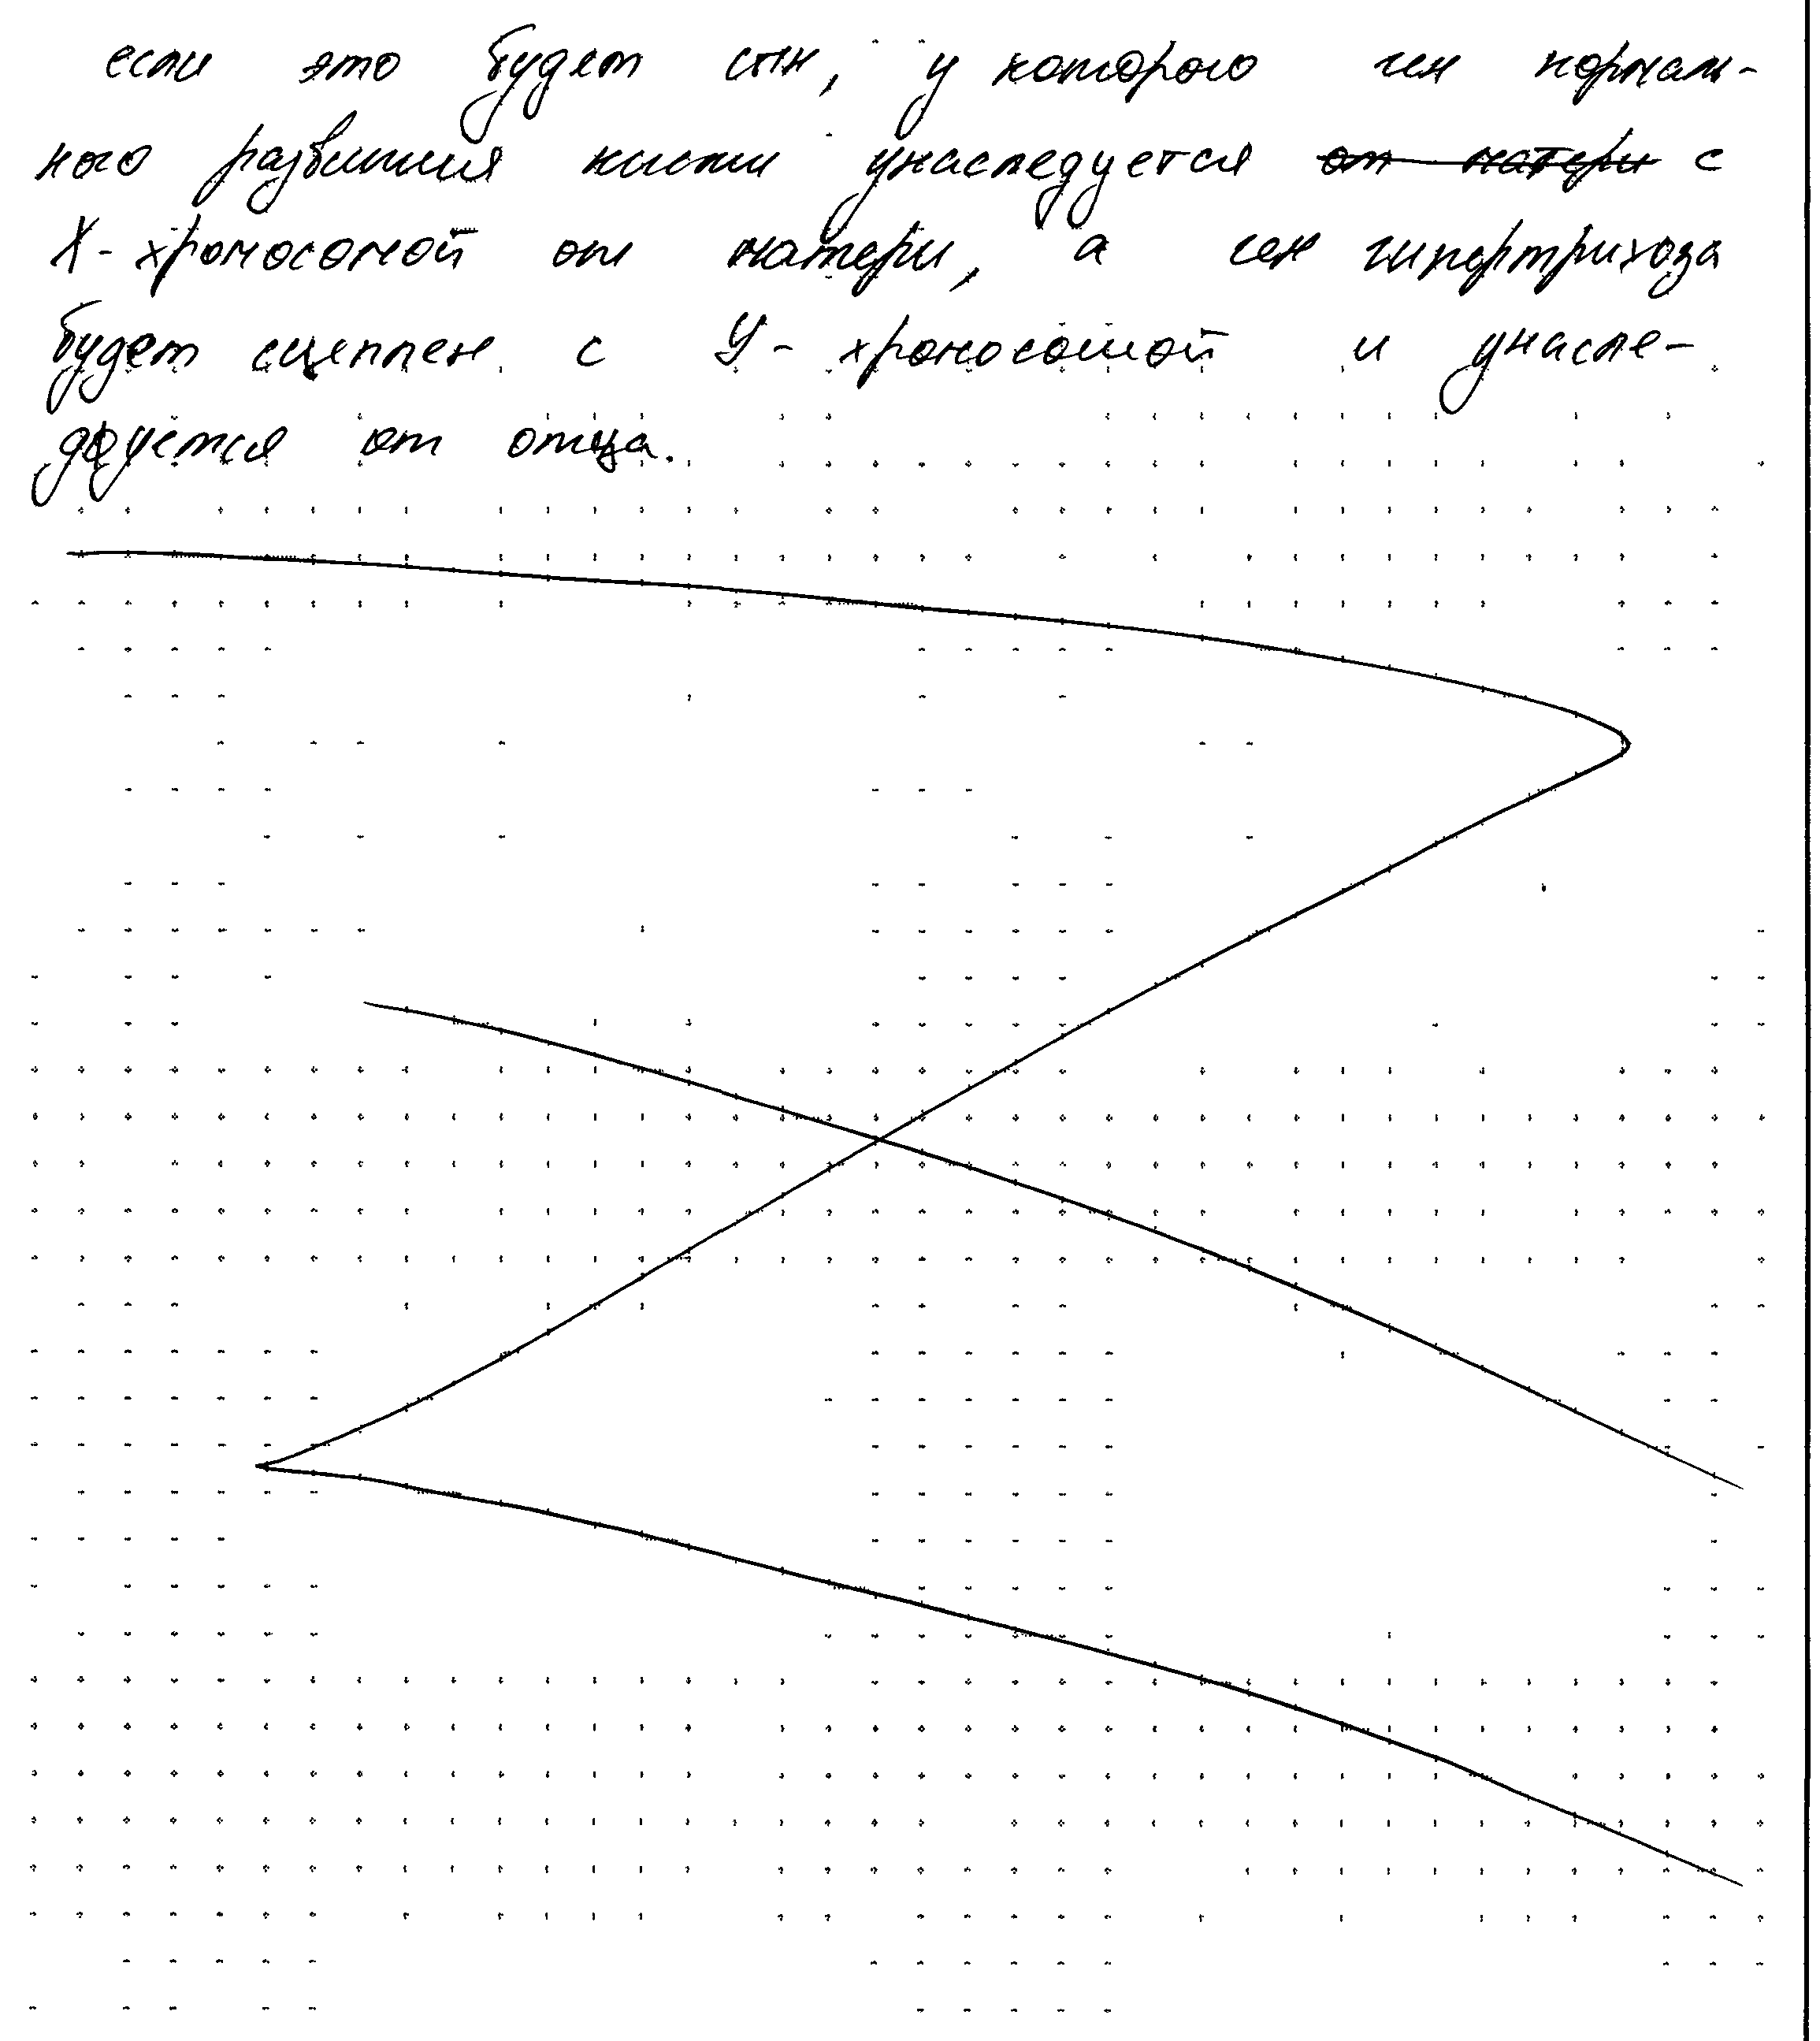 если это будет сын, у которого ген нормаль-
ного развития кисти унаследуется ~~от матери~~ с
X-хромосомой от матери, а ген гипертрихоза
будет сцеплен с Y-хромосомой и унасле-
дуется от отца.